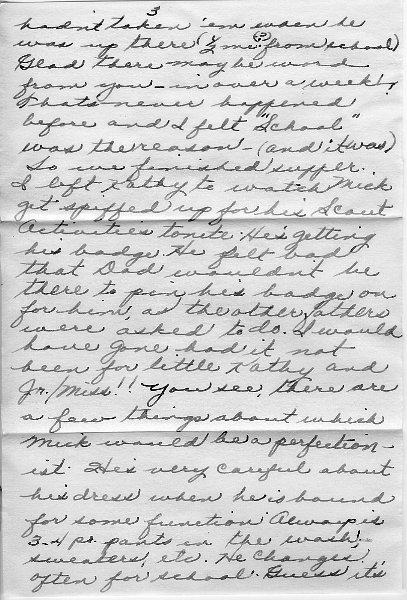 3
hadn't taken 'em when he
was up there (1/2 mi(?) from school)
Glad there may be word
from you - in over a week!
Thats never happened
before and I felt "School"
was the reason - (and it was)
So we finished supper.
I left Kathy to watch Mick
get spiffed up for his Scout
Activities tonite. He's getting
his badge. He felt bad
that Dad wouldn't be
there to pin his badge on
for him, as the other fathers
were asked to do. I would
have gone had it not
been for little Kathy and
Jr. Miss!! You see, there are
a few things about which
Mick would be a perfection-
ist. He's very careful about
his dress when he is bound
for some function. Always is
3-4 pr. pants in the wash,
sweaters, etc. He changes
often for school. Guess it's